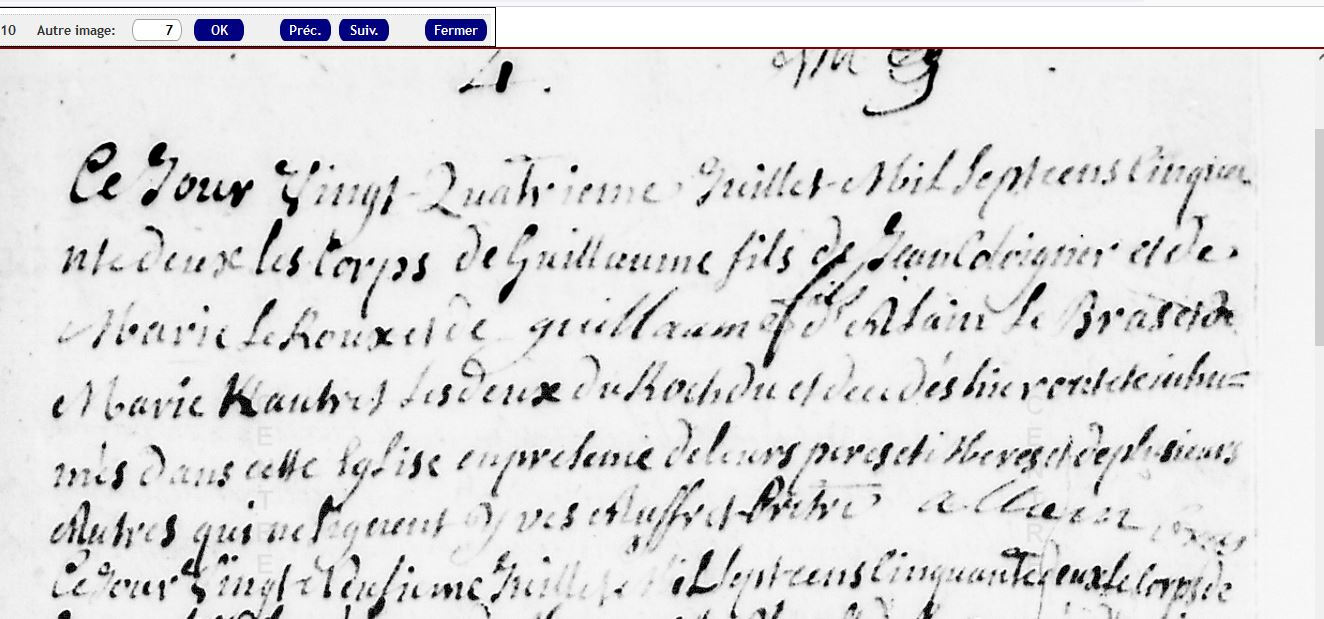 10 Autre image: 7 OK Préc. Suiv. Fermer
4.
Ce Jour Vingt-Quatrieme Juillet Mil Septcens Cinqua
nte deux les Corps de Guillaume fils de Jean et de
Marie Le Roux et de guillaume fils d'Alain Le Bras et de
Marie Kautret Les deux du et decedés hier ont eté inhu=
més dans cette Eglise en presence de leurs peres et Meres et de plusieurs
Autres qui ne signent Yves Auffret Prêtre
Ce Jour Vingt Juillet Mil Septcens Cinquante deux Le Corps de